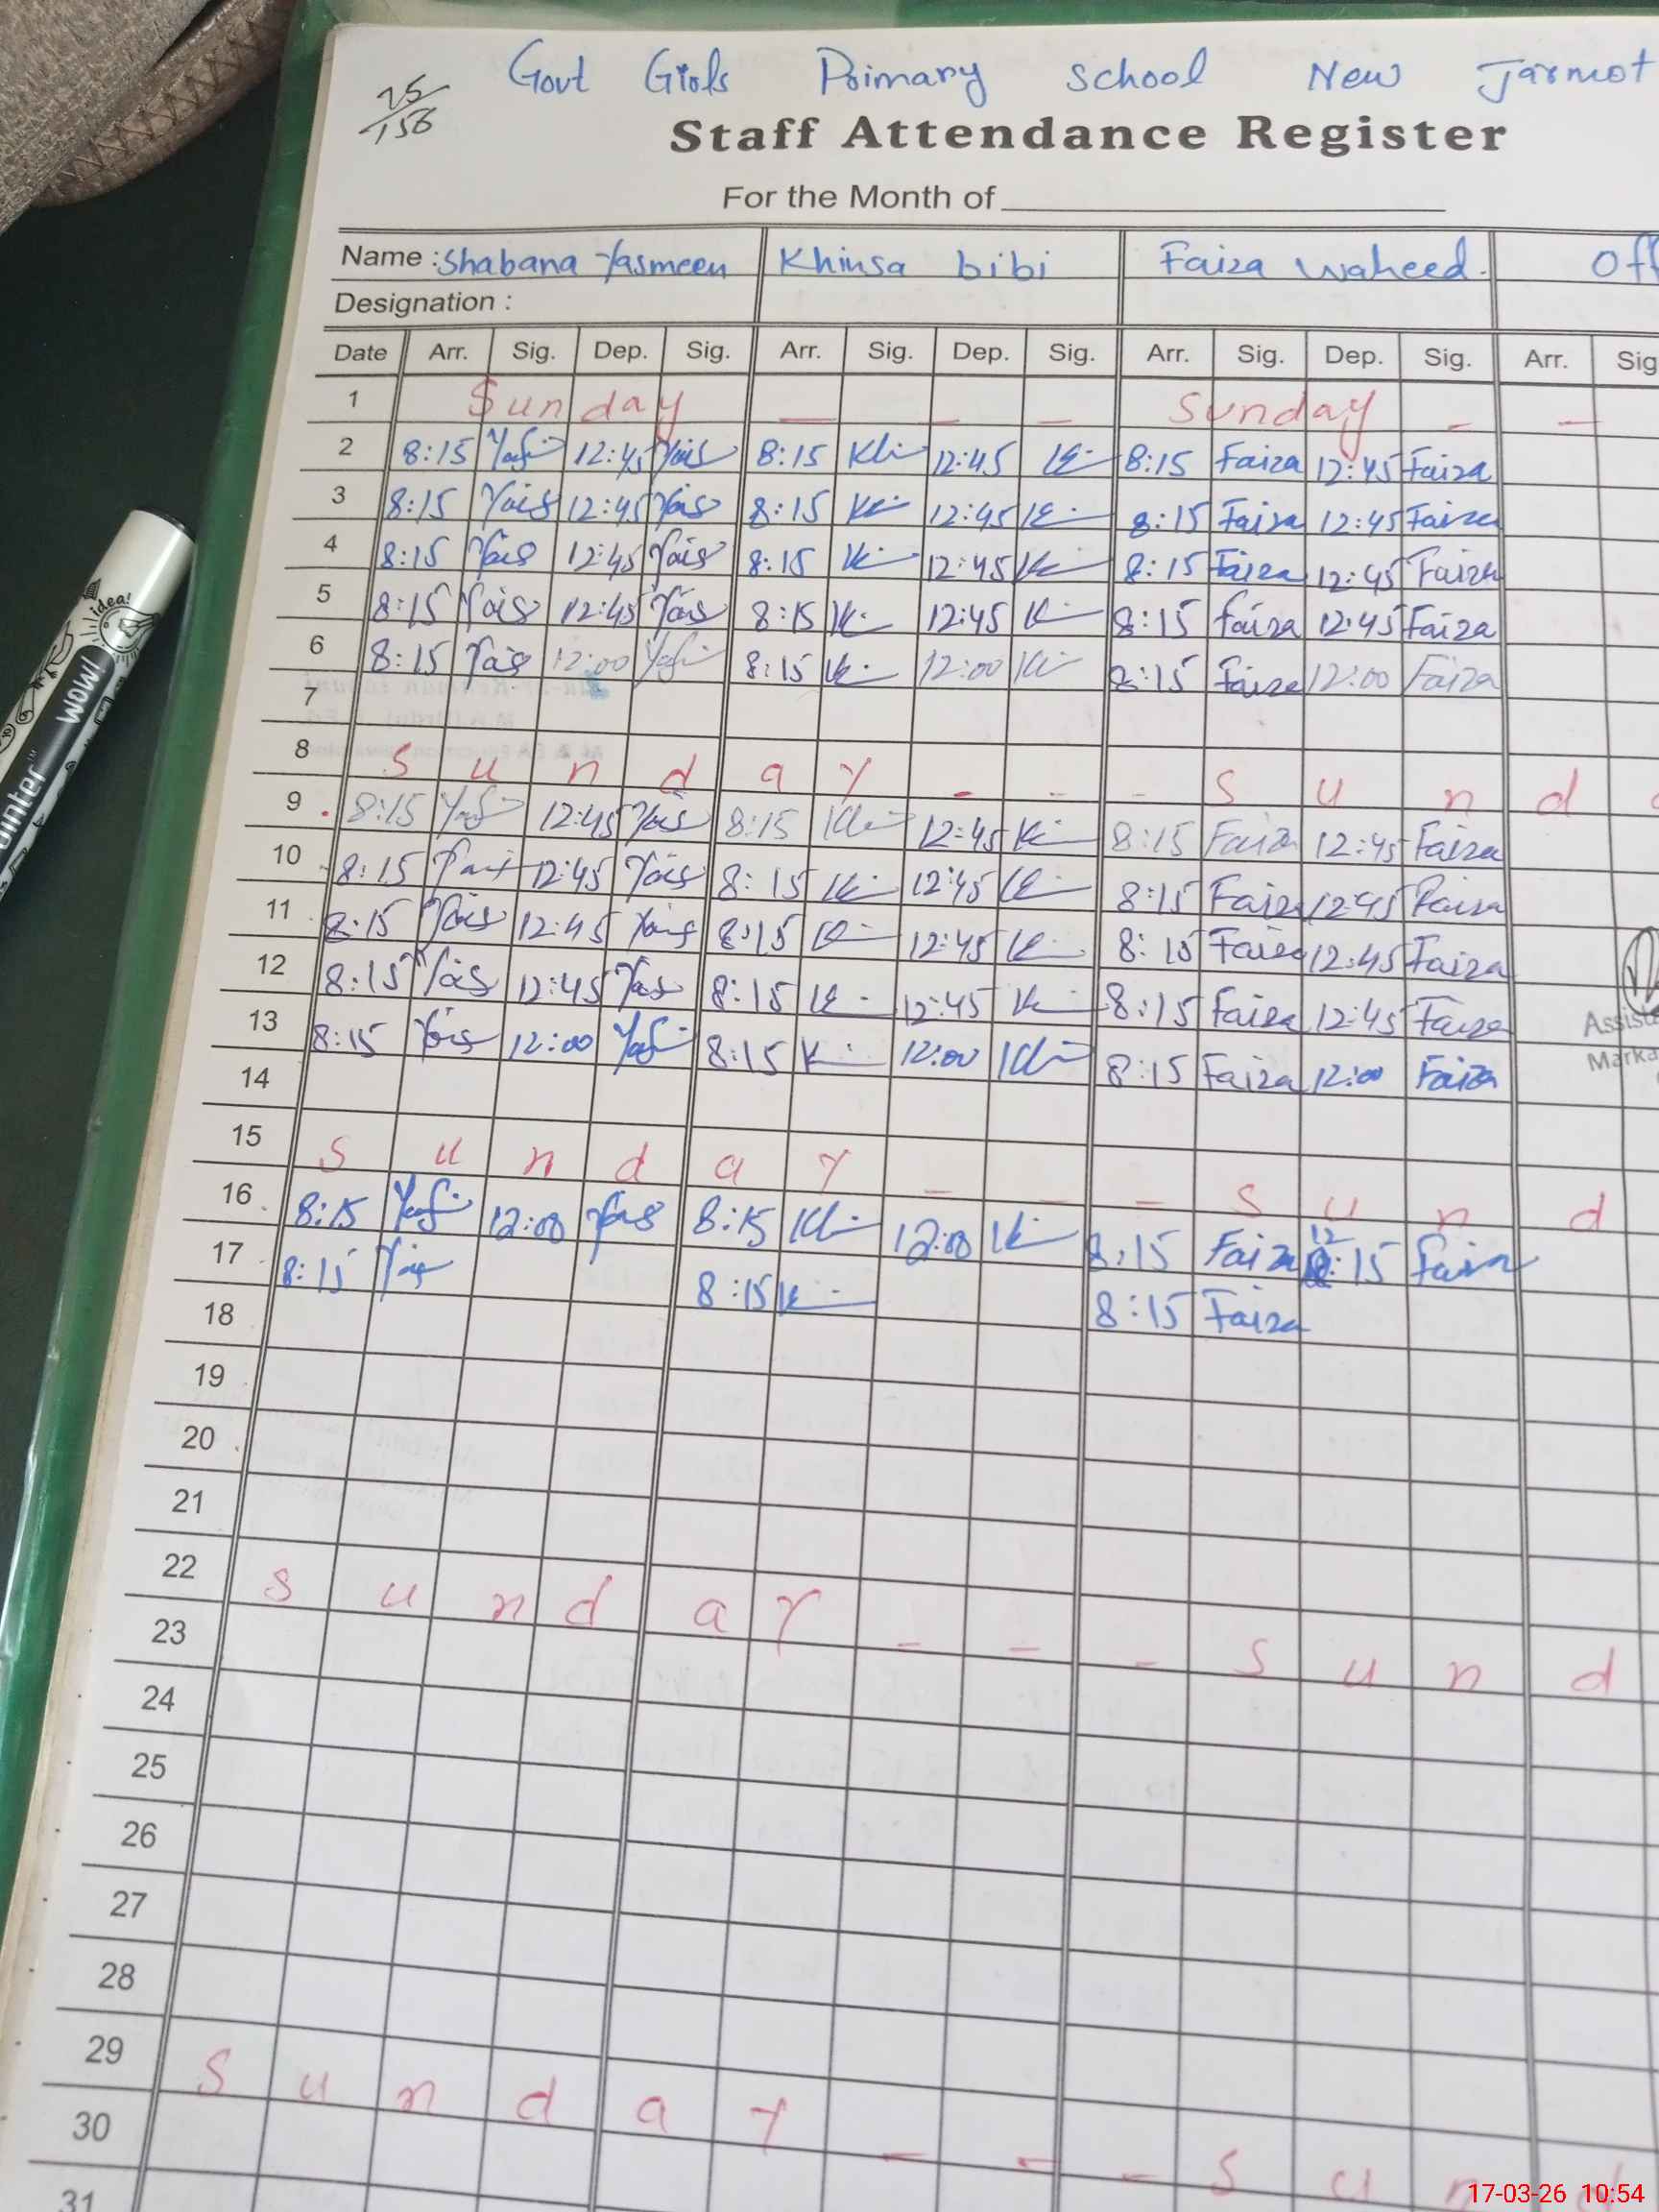 Govt Girls Primary School New Jarmot
25/156
Staff Attendance Register
For the Month of
Name : Shabana Yasmeen Khinsa bibi Faiza Waheed. Off
Designation :
Date Arr. Sig. Dep. Sig. Arr. Sig. Dep. Sig. Arr. Sig. Dep. Sig. Arr. Sig
1 Sunday _ _ _ Sunday - -
2 8:15 12:45 8:15 12:45 8:15 Faiza 12:45 Faiza
3 8:15 12:45 8:15 12:45 8:15 Faiza 12:45 Faiza
4 8:15 12:45 8:15 12:45 8:15 Faiza 12:45 Faiza
5 8:15 12:45 8:15 12:45 8:15 Faiza 12:45 Faiza
6 8:15 12:00 8:15 12:00 8:15 Faiza 12:00 Faiza
7
8 Sunday - - - Sund
9 8:15 12:45 8:15 12:45 8:15 Faiza 12:45 Faiza
10 8:15 12:45 8:15 12:45 8:15 Faiza 12:45 Faiza
11 8:15 12:45 8:15 12:45 8:15 Faiza 12:45 Faiza
12 8:15 12:45 8:15 12:45 8:15 Faiza 12:45 Faiza
13 8:15 12:00 8:15 12:00 8:15 Faiza 12:00 Faiza
Assist
Marka
14
15 Sunday - - - Sund
16 8:15 12:00 8:15 12:00 8:15 Faiza 12:15 Faiza
17 8:15 8:15 8:15 Faiza
18
19
20
21
22 Sunday - - - Sund
23
24
25
26
27
28
29 Sunday - - - Sun
30
31
idea!
WOW!
ointer
17-03-26 10:54